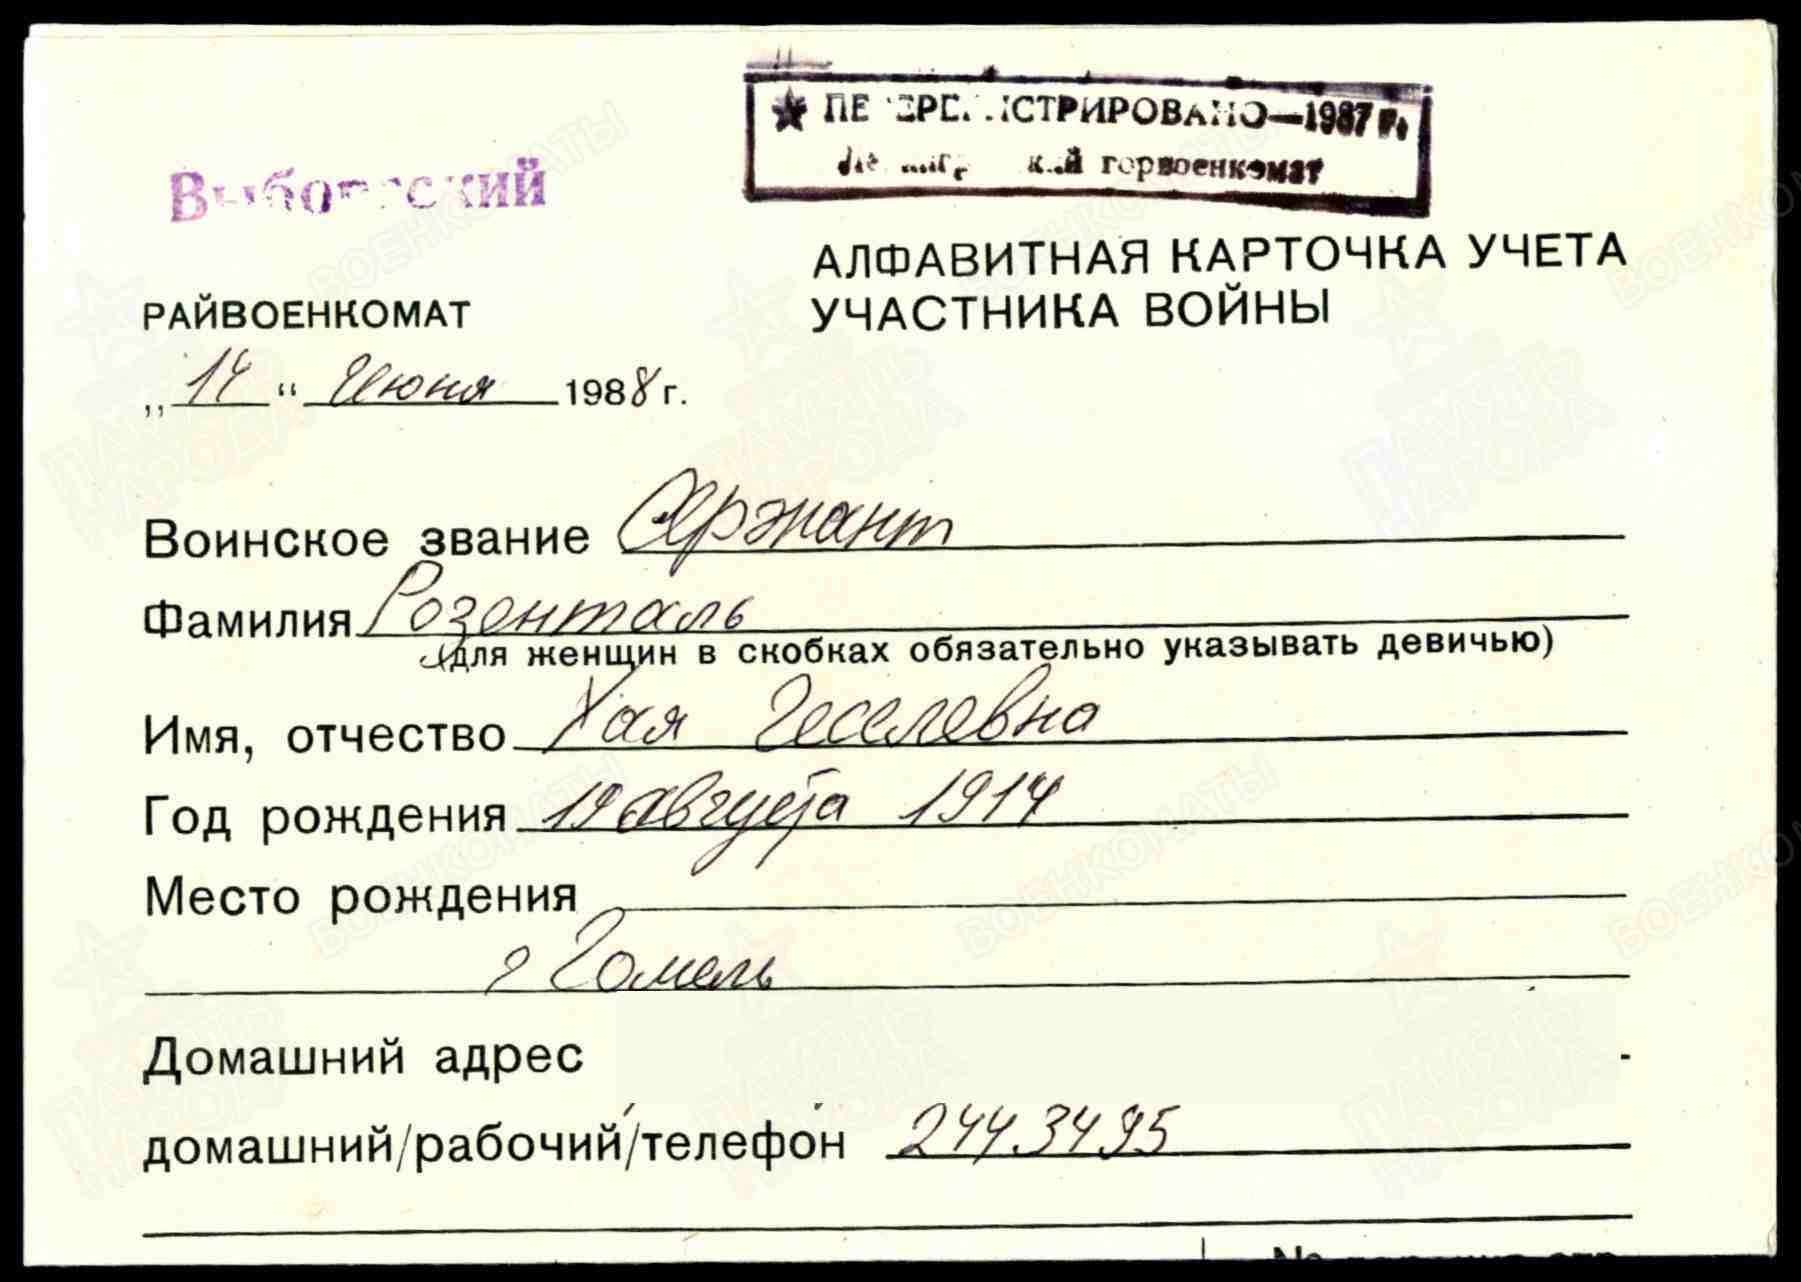 ★ ПЕРЕРЕГИСТРИРОВАНО—1987 г.
горвоенкомат
Выборгский
АЛФАВИТНАЯ КАРТОЧКА УЧЕТА
УЧАСТНИКА ВОЙНЫ
РАЙВОЕНКОМАТ
„14“ Июня 1988 г.
Воинское звание Сержант
Фамилия Розенталь
(для женщин в скобках обязательно указывать девичью)
Имя, отчество Хая Геселевна
Год рождения августа 1914
Место рождения
г Гомель
Домашний адрес
домашний/рабочий/телефон 244.34.95
ВОЕНКОМАТЫ
ПАМЯТЬ НАРОДА